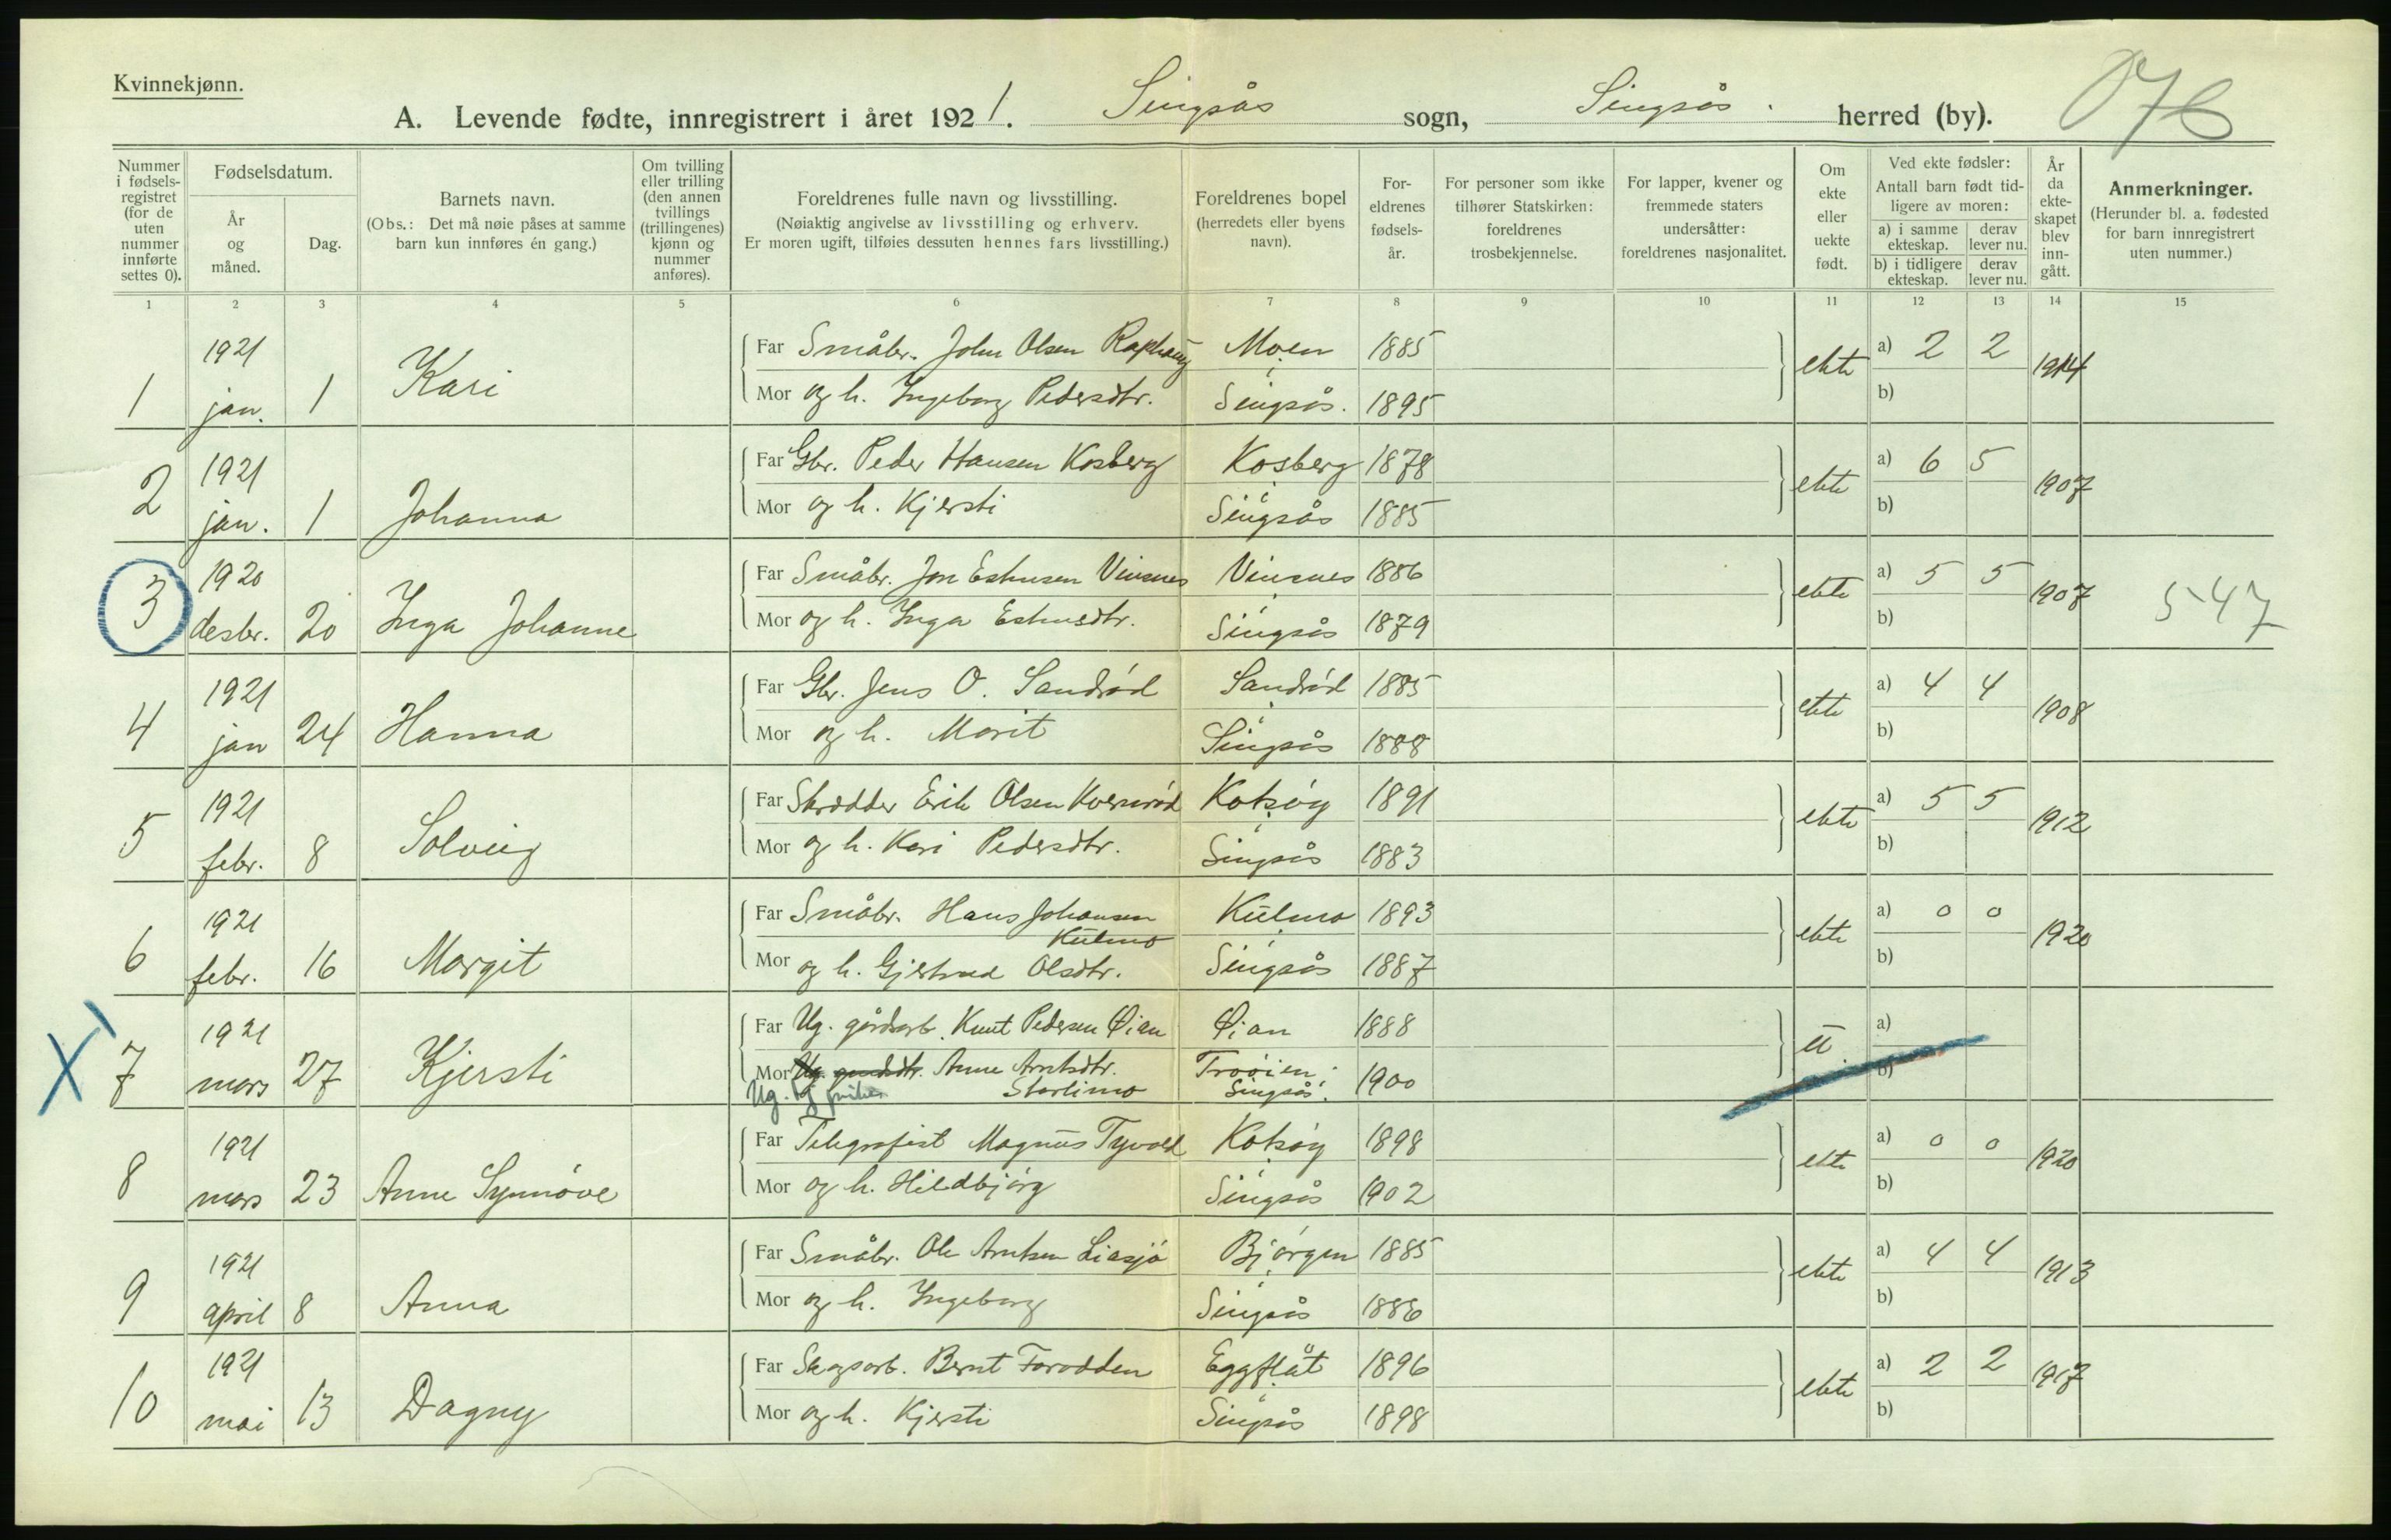 Kvinnekjønn.
A. Levende fødte, innregistrert i året 1921. Singsås sogn, Singsås. herred (by). 076
Nummer i fødselsregistret (for de uten nummer innførte settes 0).
Fødselsdatum.
År og måned.
Dag.
Barnets navn.
(Obs.: Det må nøie påses at samme barn kun innføres én gang.)
Om tvilling eller trilling (den annen tvillings (trillingenes) kjønn og nummer anføres).
Foreldrenes fulle navn og livsstilling.
(Nøiaktig angivelse av livsstilling og erhverv.
Er moren ugift, tilføies dessuten hennes fars livsstilling.)
Foreldrenes bopel
(herredets eller byens navn).
Foreldrenes fødselsår.
For personer som ikke tilhører Statskirken: foreldrenes trosbekjennelse.
For lapper, kvener og fremmede staters undersåtter: foreldrenes nasjonalitet.
Om ekte eller uekte født.
Ved ekte fødsler:
Antall barn født tidligere av moren:
a) i samme ekteskap.
derav lever nu.
b) i tidligere ekteskap.
derav lever nu.
År da ekteskapet blev inngått.
Anmerkninger.
(Herunder bl. a. fødested for barn innregistrert uten nummer.)
1 2 3 4 5 6 7 8 9 10 11 12 13 14 15
1 1921 jan. 1 Kari
Far Småbr. John Olsen Moen 1885
Mor og h. Ingeborg Pedersdtr. Singsås. 1895
ekte a) 2 2 1914
b)
2 1921 jan. 1 Johanna
Far Gbr. Peder Hansen Kosberg Kosberg 1878
Mor og h. Kjersti Singsås 1885
ekte a) 6 5 1907
b)
3 1920 desbr. 20 Inga Johanne
Far Småbr. Jon Estensen Vinsnes Vinsnes 1886
Mor og h. Inga Estensdtr. Singsås 1879
ekte a) 5 5 1907 547
b)
4 1921 jan 24 Hanna
Far Gbr. Jens O. Sandrød Sandrød 1885
Mor og h. Marit Singsås 1888
ekte a) 4 4 1908
b)
5 1921 febr. 8 Solveig
Far Skredder Erik Olsen Kvernrød Kotsøy 1891
Mor og h. Kari Pedersdtr. Singsås 1883
ekte a) 5 5 1912
b)
6 1921 febr. 16 Margit
Far Småbr. Hans Johansen Kulmo 1893
Kulmo
Mor og h. Gjertrud Olsdtr. Singsås 1887
ekte a) 0 0 1920
b)
X 7 1921 mars 27 Kjersti
Far Ug. gårdarb. Knut Pedersen Øian Øian 1888
Mor Ug. Anne Arntsdtr. Trøøien.
Ug. Storlimo Singsås. 1900
u. a)
b)
8 1921 mars 23 Anne Synnøve
Far Telegrafist Magnus Tyvold Kotsøy 1898
Mor og h. Hildbjørg Singsås 1902
ekte a) 0 0 1920
b)
9 1921 april 8 Anna
Far Småbr. Ole Arntsen Liasjø Bjørgen 1885
Mor og h. Ingeborg Singsås 1886
ekte a) 4 4 1913
b)
10 1921 mai 13 Dagny
Far Skogsarb. Bernt Forodden Eggflåt 1896
Mor og h. Kjersti Singsås 1898
ekte a) 2 2 1917
b)